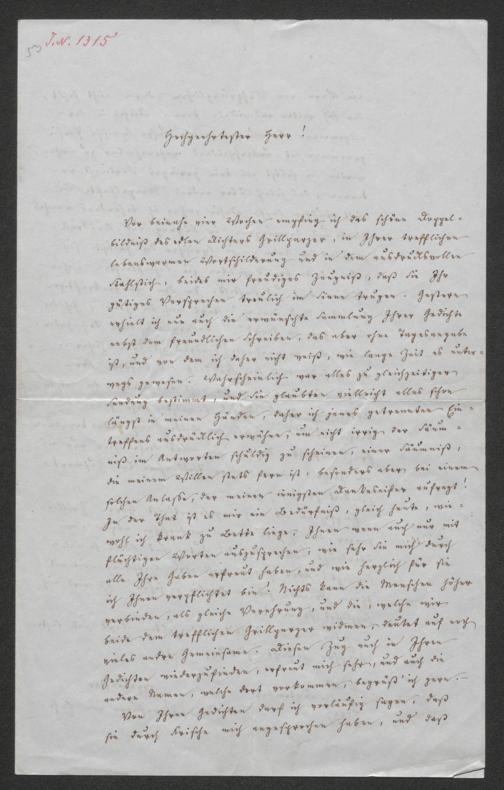 53 J.N. 1315
Hochgeehrtester Herr!
Vor beinahe vier Wochen empfing ich das schöne Doppel-
bildniß des edlen Dichters Grillparzer, in Ihrer trefflichen
lebenswarmen Wortschilderung und in dem ausdrucksvollen
Stahlstich, beides mir freudiges Zeugniß, daß Sie Ihr
gütiges Versprechen treulich im Sinne trugen. Gestern
erhielt ich nun auch die erwünschte Sammlung Ihrer Gedichte
nebst dem freundlichen Schreiben, das aber ohne Tagesangabe
ist, und von dem ich daher nicht weiß, wie lange Zeit es unter-
wegs gewesen. Wahrscheinlich war alles zu gleichzeitiger
Sendung bestimmt, und Sie glaubten vielleicht alles schon
längst in meinen Händen, daher ich jenes getrennten Ein-
treffens ausdrücklich erwähne, um nicht irrig der Säum-
niß im Antworten schuldig zu scheinen, einer Säumniß,
die meinem Willen stets fern ist, besonders aber, bei einem
solchen Anlasse, der meinen innigsten Dankeseifer aufregt!
In der That ist es mir ein Bedürfniß, gleich heute, wie-
wohl ich krank zu Bette liege, Ihnen wenn auch nur mit
flüchtigen Worten auszusprechen, wie sehr Sie mich durch
alle Ihre Gaben erfreut haben, und wie herzlich für sie
ich Ihnen verpflichtet bin! Nichts kann die Menschen höher
verbinden, als gleiche Verehrung, und die, welche wir
beide dem trefflichen Grillparzer widmen, deutet auf noch
vieles andre Gemeinsame. Diesen Zug auch in Ihren
Gedichten wiederzufinden, erfreut mich sehr, und auch die
andern Namen, welche dort vorkommen, begrüß' ich gern. —
Von Ihren Gedichten darf ich vorläufig sagen, daß
sie durch Frische mich angesprochen haben, und daß